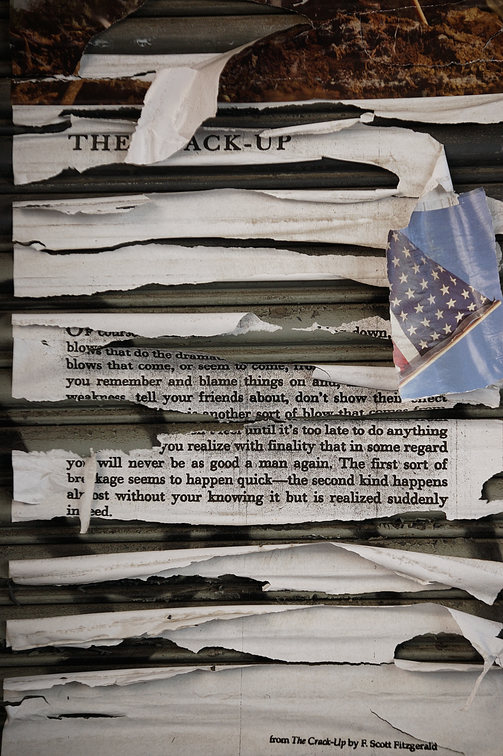 THE ACK-UP
Of down,
blows that do the
blows that come, or seem to come,
you remember and blame things on and,
weakness tell your friends about, don't show their
another sort of blow that
until it's too late to do anything
you realize with finality that in some regard
you will never be as good a man again. The first sort of
kage seems to happen quick—the second kind happens
without your knowing it but is realized suddenly
in eed.
from The Crack-Up by F. Scott Fitzgerald